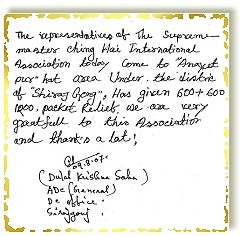 The representatives of The Supreme
master ching Hai International
Association today Come to "Anayet
pur" hat area Under the district
of "Shiraj Gong", Has given 600+600
packet Relief, we are very
greatfull to this Association
and thanks a lot!
09.8.07
(Dulal Krishna Saha)
ADC (General)
DC office
Sirajgonj.